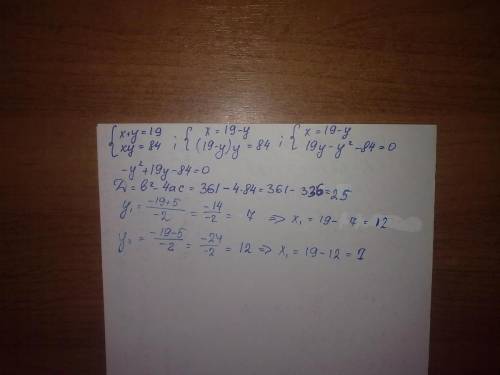 { x+y=19 ; { x=19-y ; { x=19-y
{ xy=84 ; { (19-y)y=84 ; { 19y-y²-84=0
-y²+19y-84=0
D=b²-4ac=361-4·84=361-336=25
y₁ = -19+5/-2 = -14/-2 = 7 => x₁ = 19-7=12
y₂ = -19-5/-2 = -24/-2 = 12 => x₁ = 19-12=7